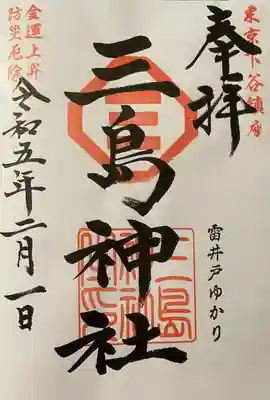 東京下谷鎮座
奉拝
雷井戸ゆかり
三島神社
三島神社之印
金運上昇
防災厄除
令和五年二月一日